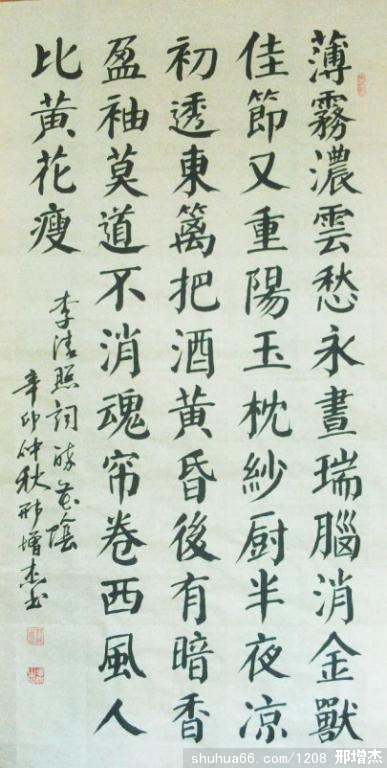 薄霧濃雲愁永晝瑞腦消金獸
佳節又重陽玉枕紗厨半夜凉
初透東篱把酒黃昏後有暗香
盈袖莫道不消魂帘卷西風人
比黃花瘦
李清照詞醉花陰
辛卯仲秋邢增杰书
shuhua66.com/1208 邢增杰